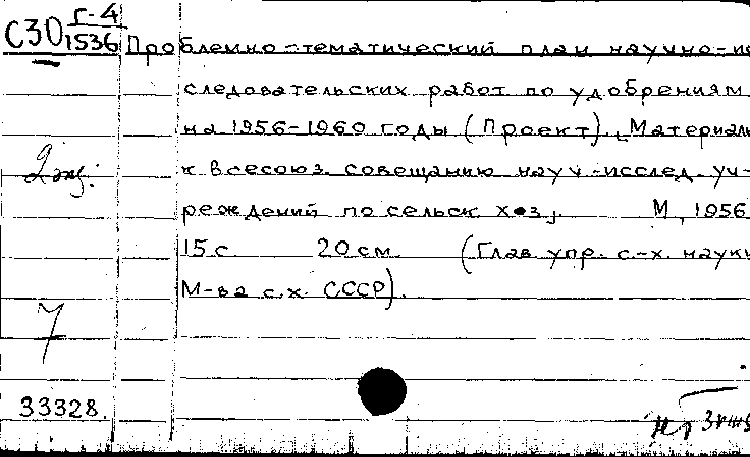 С30 Г-4
1536
Проблемно-тематический план научно-ис
следовательских работ по удобрениям
на 1956-1960 годы (Проект). [Материалы
к всесоюз. совещанию науч.-исслед. уч-
реждений по сельск хоз,. М, 1956
15 с. 20 см. (Глав. упр. с.-х. науки
М-ва с.х. СССР).
2 экз.
7
33328.